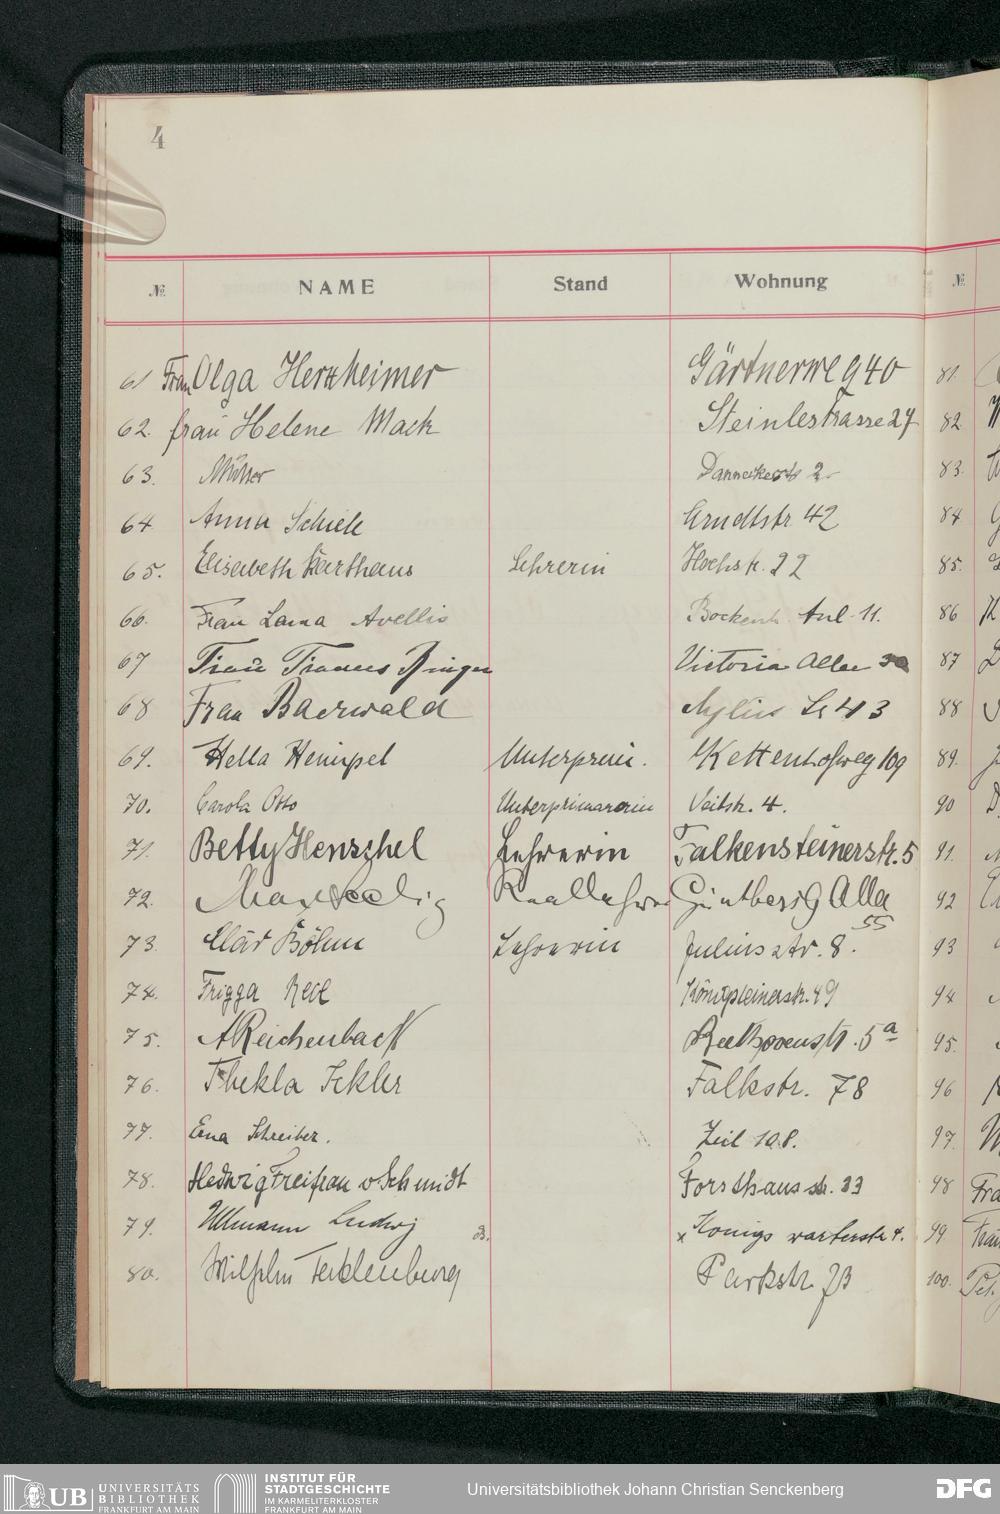 4
№ NAME Stand Wohnung №
61 Frau Olga Herxheimer Gärtnerweg 40 81.
62. frau Helene Mack Steinlestrasse 27 82.
63. Müller Danneckerstr 2. 83.
64 Anna Schiele Arndtstr 42 84
65. Elisabeth Karthaus Lehrerin Hochstr. 22 85.
66. Frau Lama Avellis Bockenh. Anl. 11. 86
67 Frau Binger Victoria Allee 87
68 Frau Baerwald Mylius Str 43 88
69. Hella Hempel Unterprim. Kettenhofweg 109 89.
70. Carola Otto Unterprimanerin Veitstr. 4. 90
71. Betty Henschel Lehrerin Falkensteinerstr. 5 91.
72. Max Seelig Günthersbg Allee 55 92
73. Clär Böhm Lehrerin Juliusstr. 8. 93
74. Frigga 49 94
75. A Reichenbach Beethovenstr. 5a 95.
76. Thekla Ickler Falkstr. 78 96
77. Erna Schreiber. Zeil 108. 97.
78. Hedwig Freifrau v Schmidt Forsthausstr. 33 98 Fra
79. Ullmann Ludwig x Königswarterstr 4. 99 Frau
80. Wilhelm Tecklenburg Parkstr. 100.
UB UNIVERSITÄTS BIBLIOTHEK FRANKFURT AM MAIN
INSTITUT FÜR STADTGESCHICHTE IM KARMELITERKLOSTER FRANKFURT AM MAIN
Universitätsbibliothek Johann Christian Senckenberg
DFG